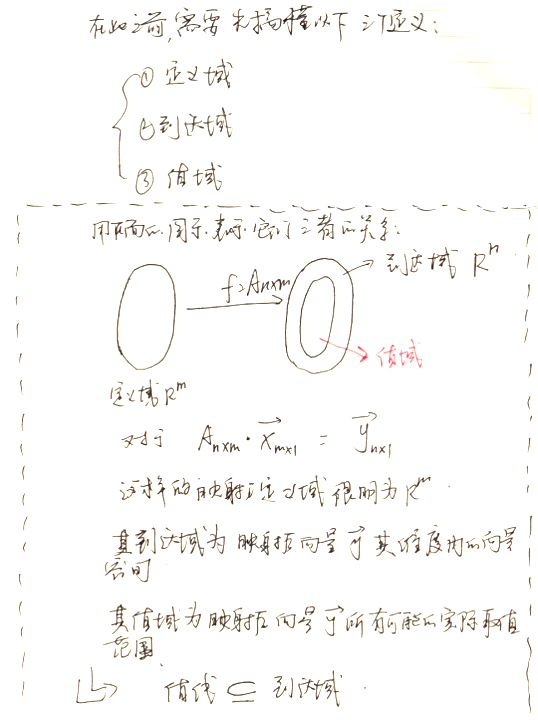 在此之前，需要先搞懂以下三个定义：
① 定义域
② 到达域
③ 值域
用下面的图示表示它们三者的关系：
f=An×m
到达域 Rⁿ
值域
定义域 Rᵐ
对于 An×m · x⃗m×1 = y⃗n×1
这样的映射，定义域很明为 Rᵐ.
其到达域为映射后向量 y⃗ 其维度内的向量
空间
其值域为映射后向量 y⃗ 所有可能的实际取值
范围
值域 ⊆ 到达域.